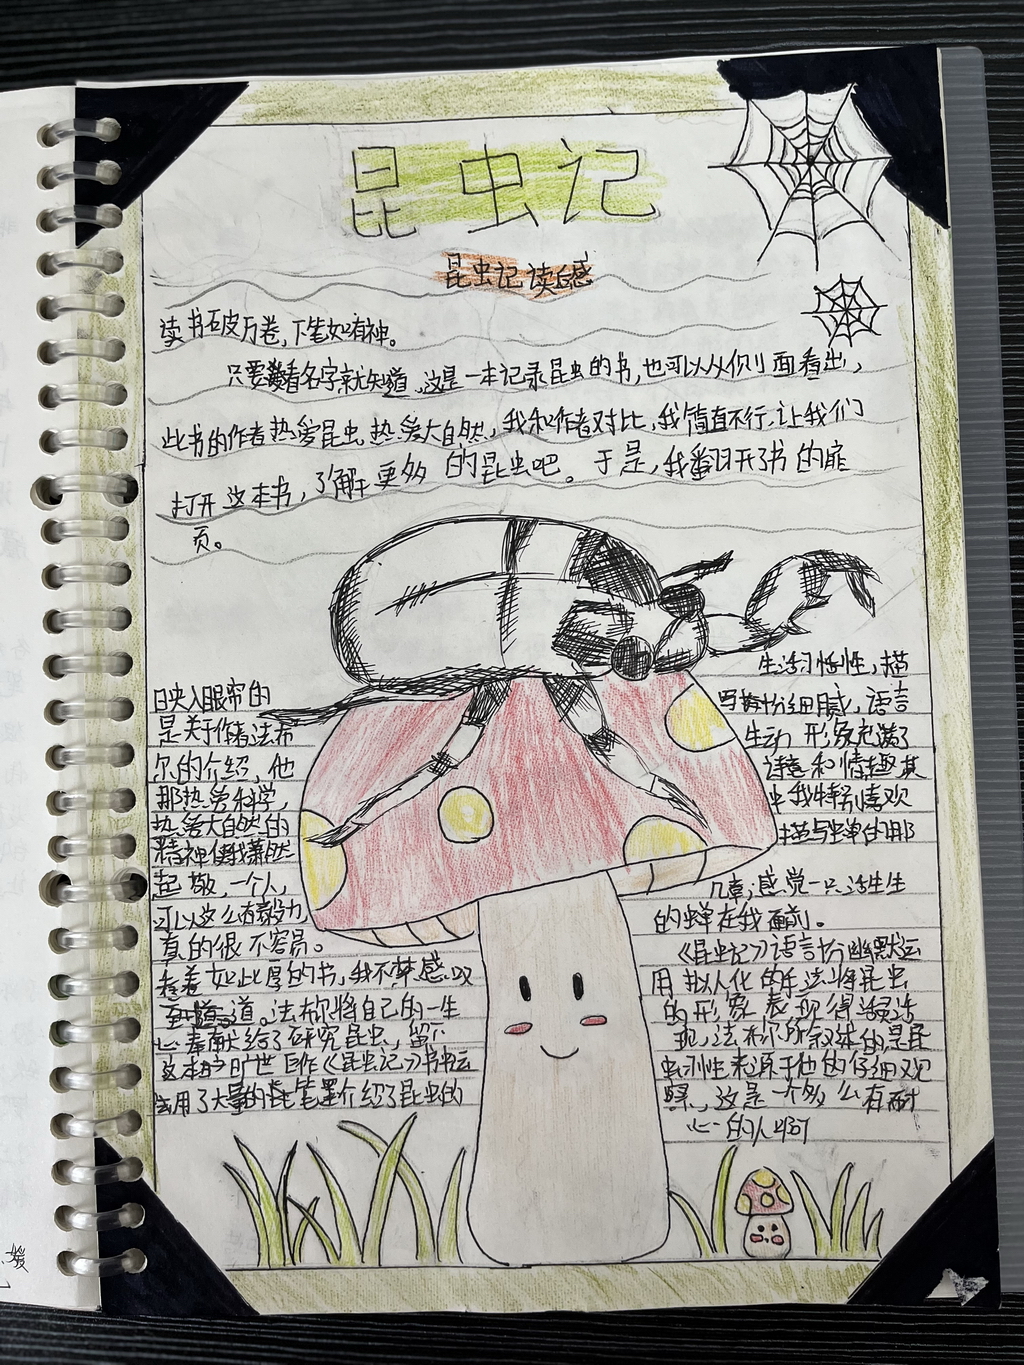 昆虫记
昆虫记读后感
读书破万卷,下笔如有神。
只要看名字就知道,这是一本记录昆虫的书,也可以从侧面看出,
此书的作者热爱昆虫,热爱大自然,我和作者对比,我简直不行,让我们
打开这本书,了解更多的昆虫吧。于是,我翻开了书的扉
页。
映入眼帘的
是关于作者法布
尔的介绍,他
那热爱科学,
热爱大自然的
精神使我肃然
起敬,一个人,
可以这么有毅力,
真的很不容易。
看着如此厚的书,我不禁感叹
到道。法布尔将自己的一生
心奉献给了研究昆虫,留下
这本旷世巨作《昆虫记》书中
运用了大量的笔墨介绍了昆虫的
生活习性,描
写十分细腻,语言
生动形象充满了
诗意和情趣其
中我特别喜欢
描写蝉的那
几章,感觉一只活生生
的蝉在我面前。
《昆虫记》语言十分幽默运
用拟人化的手法将昆虫
的形象表现得活灵活
现,法布尔所叙述的是昆
虫习性来源于他的仔细观
察,这是一个多么有耐
心的人啊
媛